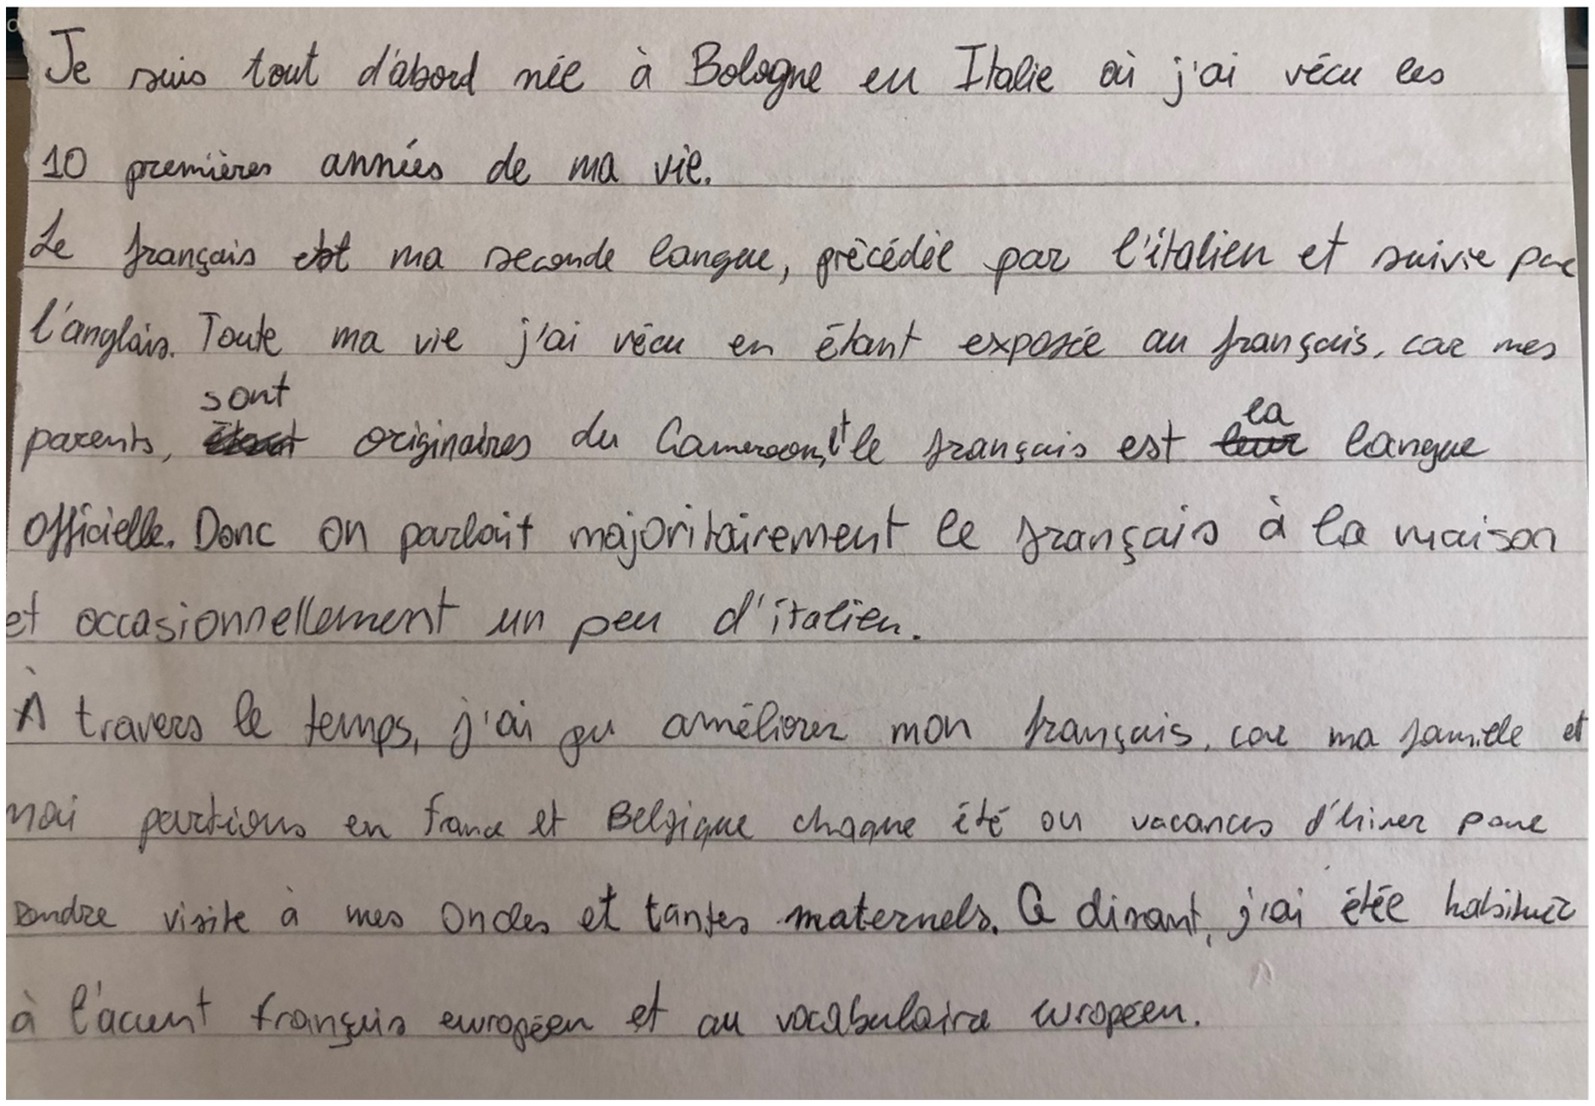 Je suis tout d'abord née à Bologne en Italie où j'ai vécu les
10 premières années de ma vie.
Le français est ma seconde langue, précédée par l'italien et suivie par
l'anglais. Toute ma vie j'ai vécu en étant exposée au français, car mes
parents, sont originaires du Cameroon, et le français est la langue
officielle. Donc on parlait majoritairement le français à la maison
et occasionnellement un peu d'italien.
À travers le temps, j'ai pu améliorer mon français, car ma famille et
moi partions en france et Belgique chaque été ou vacances d'hiver pour
rendre visite à mes oncles et tantes maternels. Ce disant, j'ai étée habituer
à l'accent français européen et au vocabulaire européen.